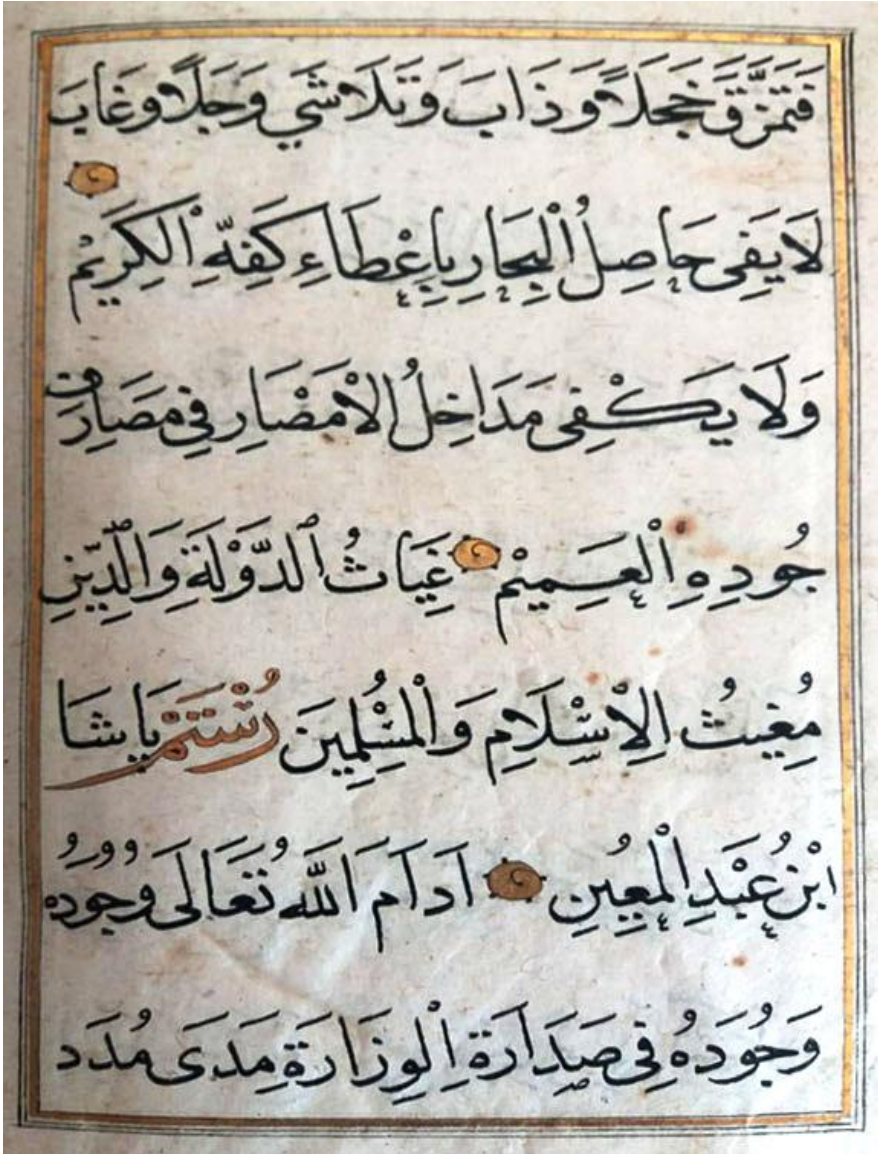 فَتَمَزَّقَ خَجَلًا وَذَابَ وَتَلَاشَي وَجَلًا وَغَابَ
لَا يَفِى حَاصِلُ الْبِحَارِ بِاِعْطَاءِ كَفِّهِ الْكَرِيْمِ
وَلَا يَكْفِى مَدَاخِلُ الْاَمْصَارِ فِي مَصَارِفِ
جُودِهِ الْعَمِيْمِ غِيَاثُ الدَّوْلَةِ وَالدِّيْنِ
مُغِيثُ الْاِسْلَامِ وَالْمُسْلِمِينَ رُسْتَمْ پَاشَا
ابْنُ عَبْدِ الْمُعِينِ اَدَامَ اللّٰهُ تَعَالَى وُجُودَهُ
وَجُودَهُ فِى صَدَارَةِ الْوِزَارَةِ مَدَى مُدَدِ